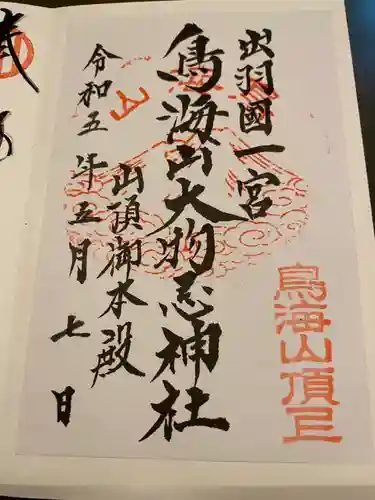 出羽國一宮
鳥海山大物忌神社
山頂御本殿
令和五年五月七日
鳥海山頂